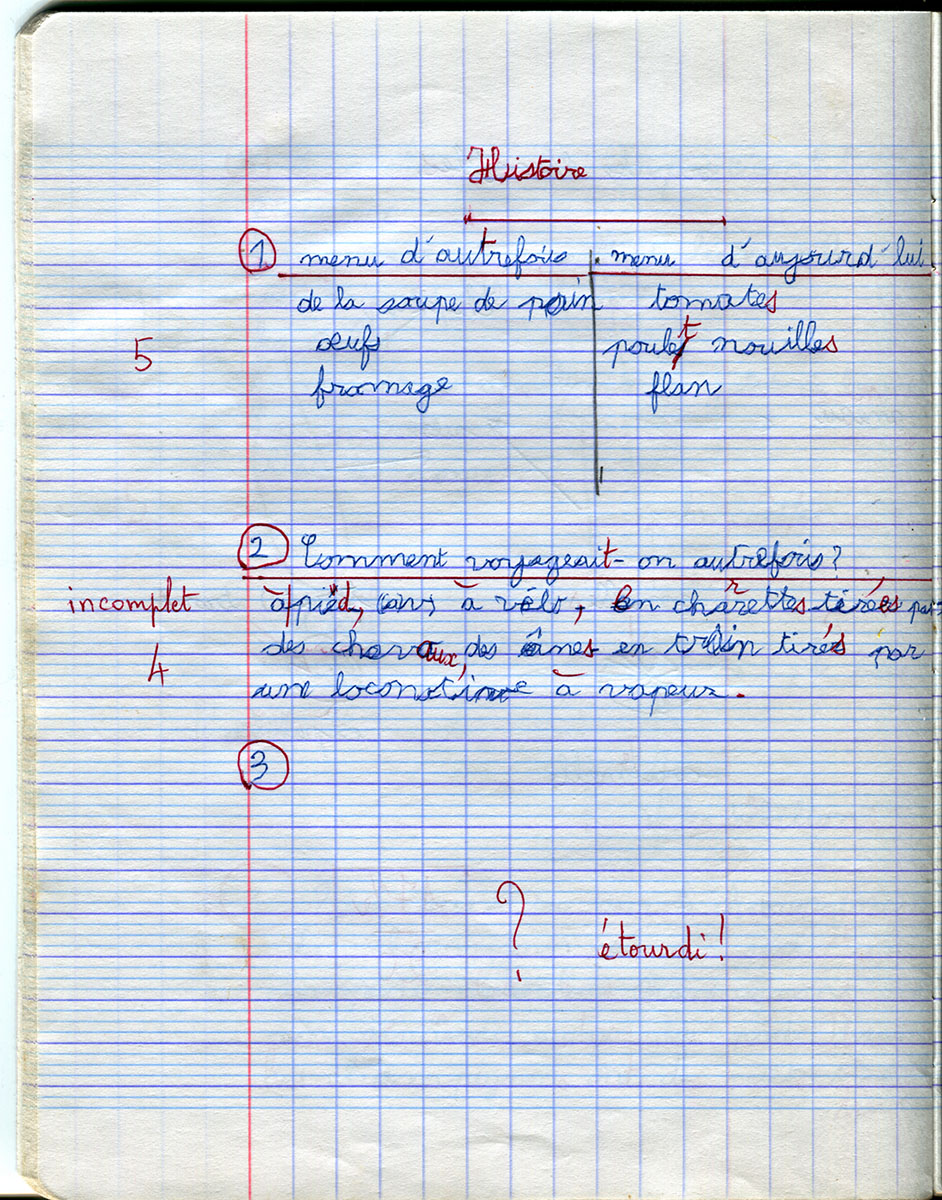 Histoire
1 menu d'autrefois menu d'aujourd'hui
de la soupe de pain tomates
œufs poulet nouilles
fromage flan
5
2 Comment voyageait-on autrefois?
incomplet à pied, à vélo, en charrettes tirées par
des chevaux, des ânes en train tirés par
4
une locomotive à vapeur.
3
? étourdi!